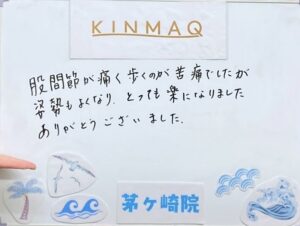 KINMAQ
股間節が痛く歩くのが苦痛でしたが
姿勢もよくなり、とっても楽になりました
ありがとうございました。
茅ヶ崎院